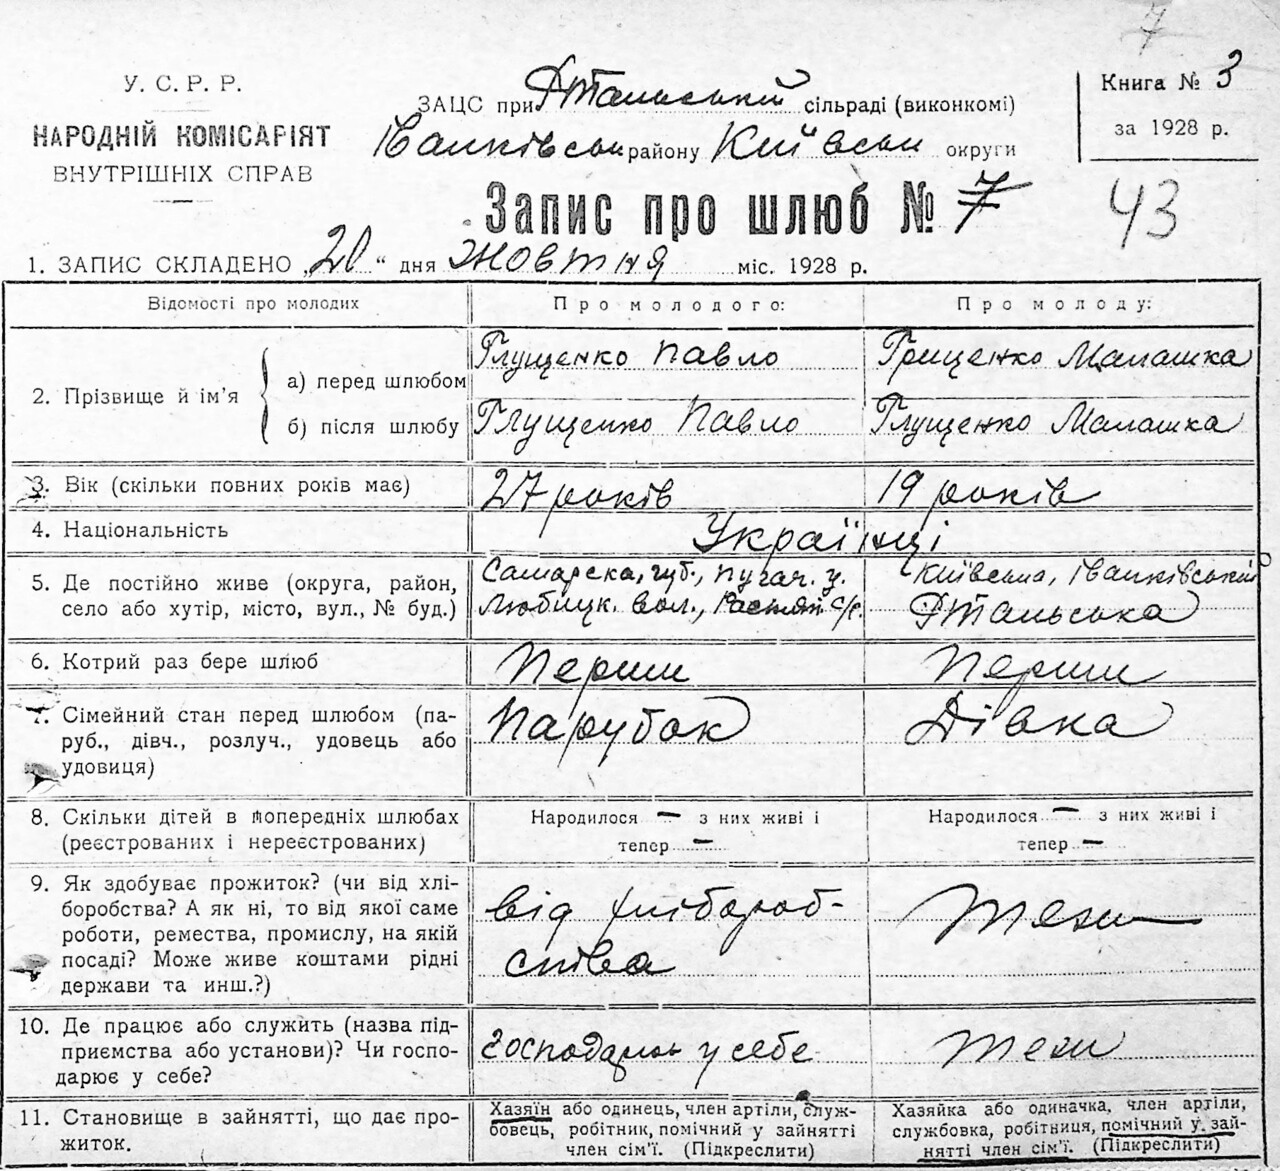 7
У. С. Р. Р.
НАРОДНІЙ КОМІСАРІЯТ
ВНУТРІШНІХ СПРАВ
ЗАЦС при Ртальській сільраді (виконкомі)
Іванківськ району Київськ округи
Книга № 3
за 1928 р.
43
Запис про шлюб № 7
1. ЗАПИС СКЛАДЕНО „20“ дня жовтня міс. 1928 р.
Відомості про молодих
Про молодого:
Про молоду:
2. Прізвище й ім’я
а) перед шлюбом
Глущенко Павло
Грищенко Малашка
б) після шлюбу
Глущенко Павло
Глущенко Малашка
3. Вік (скільки повних років має)
27 років
19 років
4. Національність
Українці
5. Де постійно живе (округа, район,
село або хутір, місто, вул., № буд.)
Самарска, губ., Пугач. у.
Любицк. вол., с/р.
Київська, Іванківський
Ртальська
6. Котрий раз бере шлюб
Перши
Перши
7. Сімейний стан перед шлюбом (па-
руб., дівч., розлуч., удовець або
удовиця)
Парубок
Дівка
8. Скільки дітей в попередніх шлюбах
(реєстрованих і нереєстрованих)
Народилося — з них живі і
тепер —
Народилося — з них живі і
тепер —
9. Як здобуває прожиток? (чи від хлі-
боробства? А як ні, то від якої саме
роботи, ремества, промислу, на якій
посаді? Може живе коштами рідні
держави та инш.?)
від хлібороб-
ства
теж
10. Де працює або служить (назва під-
приємства або установи)? Чи госпо-
дарює у себе?
господарює у себе
теж
11. Становище в зайнятті, що дає про-
житок.
Хазяїн або одинець, член артіли, служ-
бовець, робітник, помічний у зайнятті
член сім’ї. (Підкреслити)
Хазяйка або одиначка, член артіли,
службовка, робітниця, помічний у зай-
нятті член сім’ї. (Підкреслити)